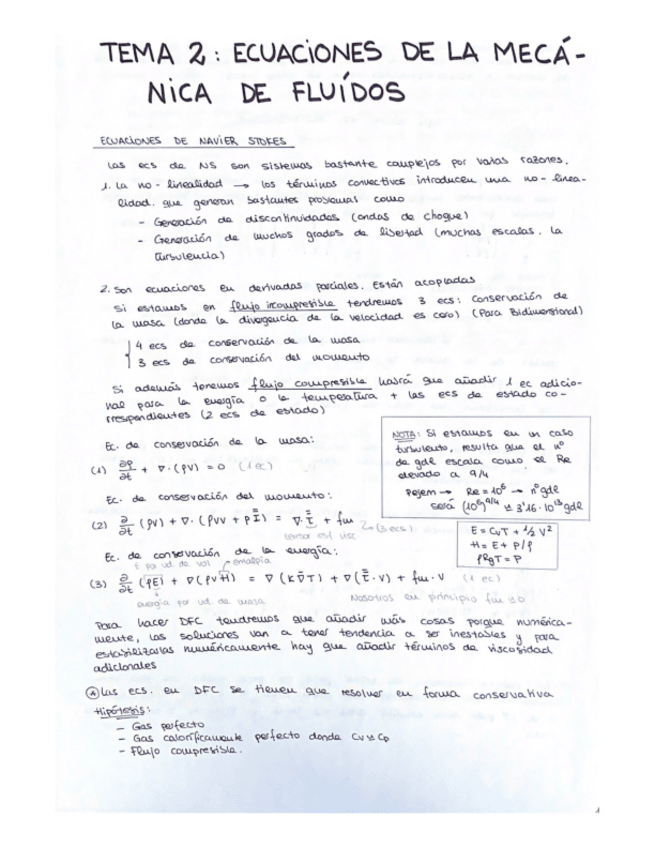 TEMA 2: ECUACIONES DE LA MECÁ-
NICA DE FLUÍDOS
ECUACIONES DE NAVIER STOKES
Las ecs de NS son sistemas bastante complejos por varias razones.
1. La no-linealidad → los términos convectivos introducen una no-linea-
lidad. que generan bastantes problemas como
- Generación de discontinuidades (ondas de choque)
- Generación de muchos grados de libertad (muchas escalas. la
turbulencia)
2. Son ecuaciones en derivadas parciales. Están acopladas
Si estamos en flujo incompresible tendremos 3 ecs: conservación de
la masa (donde la divergencia de la velocidad es cero) (Para Bidimensional)
4 ecs de conservación de la masa
3 ecs de conservación del momento
Si además tenemos flujo compresible habrá que añadir 1 ec adicio-
nal para la energía o la temperatura + las ecs de estado co-
rrespondientes (2 ecs de estado)
Ec. de conservación de la masa:
(1) ∂ρ/∂t + ∇·(ρv) = 0 (1 ec)
Ec. de conservación del momento:
(2) ∂/∂t (ρv) + ∇·(ρvv + pI̿) = ∇·τ̿ + fm (3 ecs)
tensor esf visc
NOTA: Si estamos en un caso
turbulento, resulta que el nº
de gdl escala como el Re
elevado a 9/4
Pejem → Re = 10⁶ → nº gdl
será (10⁶)^9/4 ≃ 3'16·10¹³ gdl
E = CvT + 1/2 V²
H = E + P/ρ
ρRgT = P
Ec. de conservación de la energía:
E por ud. de vol entalpia
(3) ∂/∂t (ρE) + ∇(ρvH) = ∇(k∇T) + ∇(τ̿·v) + fm·v (1 ec)
energía por ud. de masa
Nosotros en principio fm≃0
Para hacer DFC tendremos que añadir más cosas porque numérica-
mente, las soluciones van a tener tendencia a ser inestables y para
estabilizarlas numéricamente hay que añadir términos de viscosidad
adicionales
Las ecs. en DFC se tienen que resolver en forma conservativa
Hipótesis:
- Gas perfecto
- Gas calorificamente perfecto donde Cv≃Cp
- Flujo compresible.
1